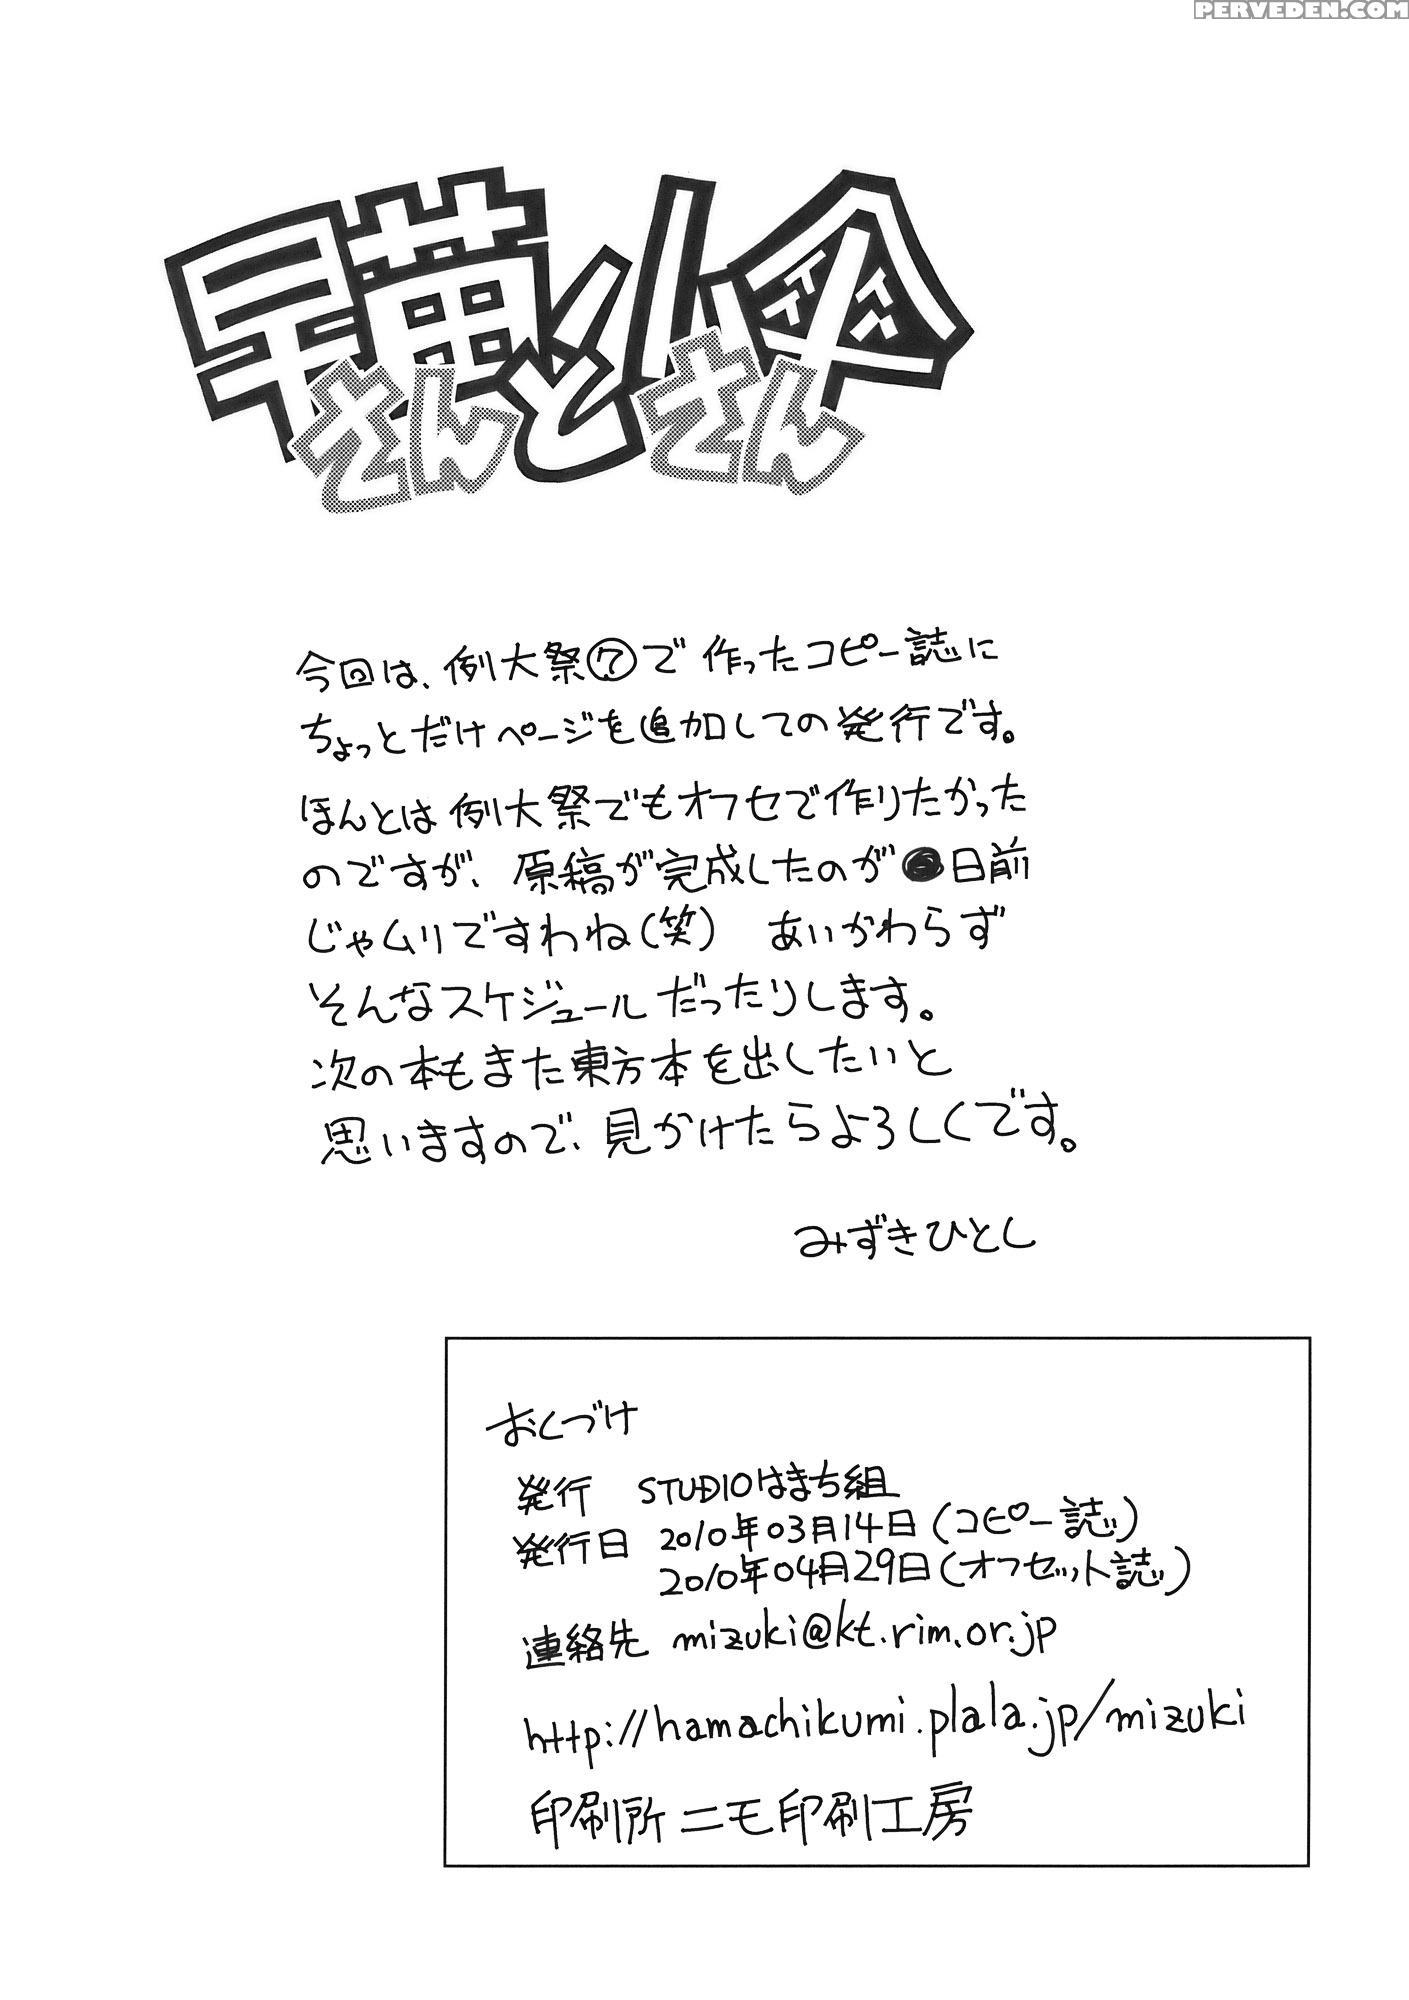 PERVEDEN.COM
早苗と小傘
さん さん
今回は、例大祭⑦で作ったコピー誌に
ちょっとだけページを追加しての発行です。
ほんとは例大祭でもオフセで作りたかった
のですが、原稿が完成したのが●日前
じゃムリですわね(笑) あいかわらず
そんなスケジュールだったりします。
次の本もまた東方本を出したいと
思いますので、見かけたらよろしくです。
みずきひとし
おくづけ
発行 STUDIOはまち組
発行日 2010年03月14日(コピー誌)
2010年04月29日(オフセット誌)
連絡先 mizuki@kt.rim.or.jp
http://hamachikumi.plala.jp/mizuki
印刷所 ニモ印刷工房